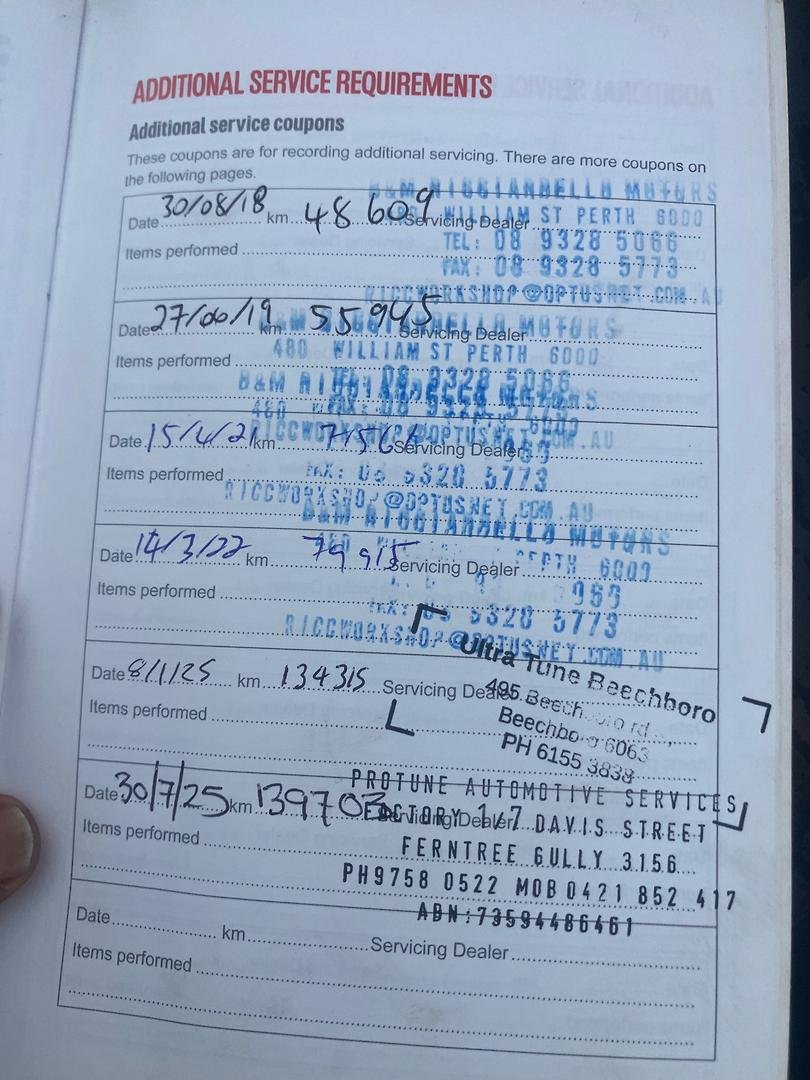 ADDITIONAL SERVICE REQUIREMENTS
Additional service coupons
These coupons are for recording additional servicing. There are more coupons on
the following pages.
B&M RICCIARDELLO MOTORS
Date 30/08/18 km 48 609 Servicing Dealer
WILLIAM ST PERTH 6000
TEL: 08 9328 5066
Items performed
FAX: 08 9328 5773
RICCWORKSHOP@OPTUSNET.COM.AU
Date 27/06/19 km 55945 Servicing Dealer
MOTORS
480 WILLIAM ST PERTH 6000
Items performed
08 9328 5066
B&M MOTORS
480 6000
Date 15/4/21 km Servicing Dealer
Items performed
FAX: 08 9328 5773
RICCWORKSHOP@OPTUSNET.COM.AU
B&M RICCIARDELLO MOTORS
Date 14/3/22 km 79915 Servicing Dealer
PERTH 6000
Items performed
FAX: 08 9328 5773
RICCWORKSHOP@OPTUSNET.COM.AU
Ultra Tune Beechboro
Date 8/1/25 km 134315 Servicing Dealer
495 Beechboro rd
Items performed
Beechboro 6063
PH 6155 3838
PROTUNE AUTOMOTIVE SERVICES
Date 30/7/25 km 139703 Servicing Dealer
FACTORY 1/7 DAVIS STREET
Items performed
FERNTREE GULLY 3156
PH9758 0522 MOB 0421 852 417
ABN:73594486461
Date km Servicing Dealer
Items performed